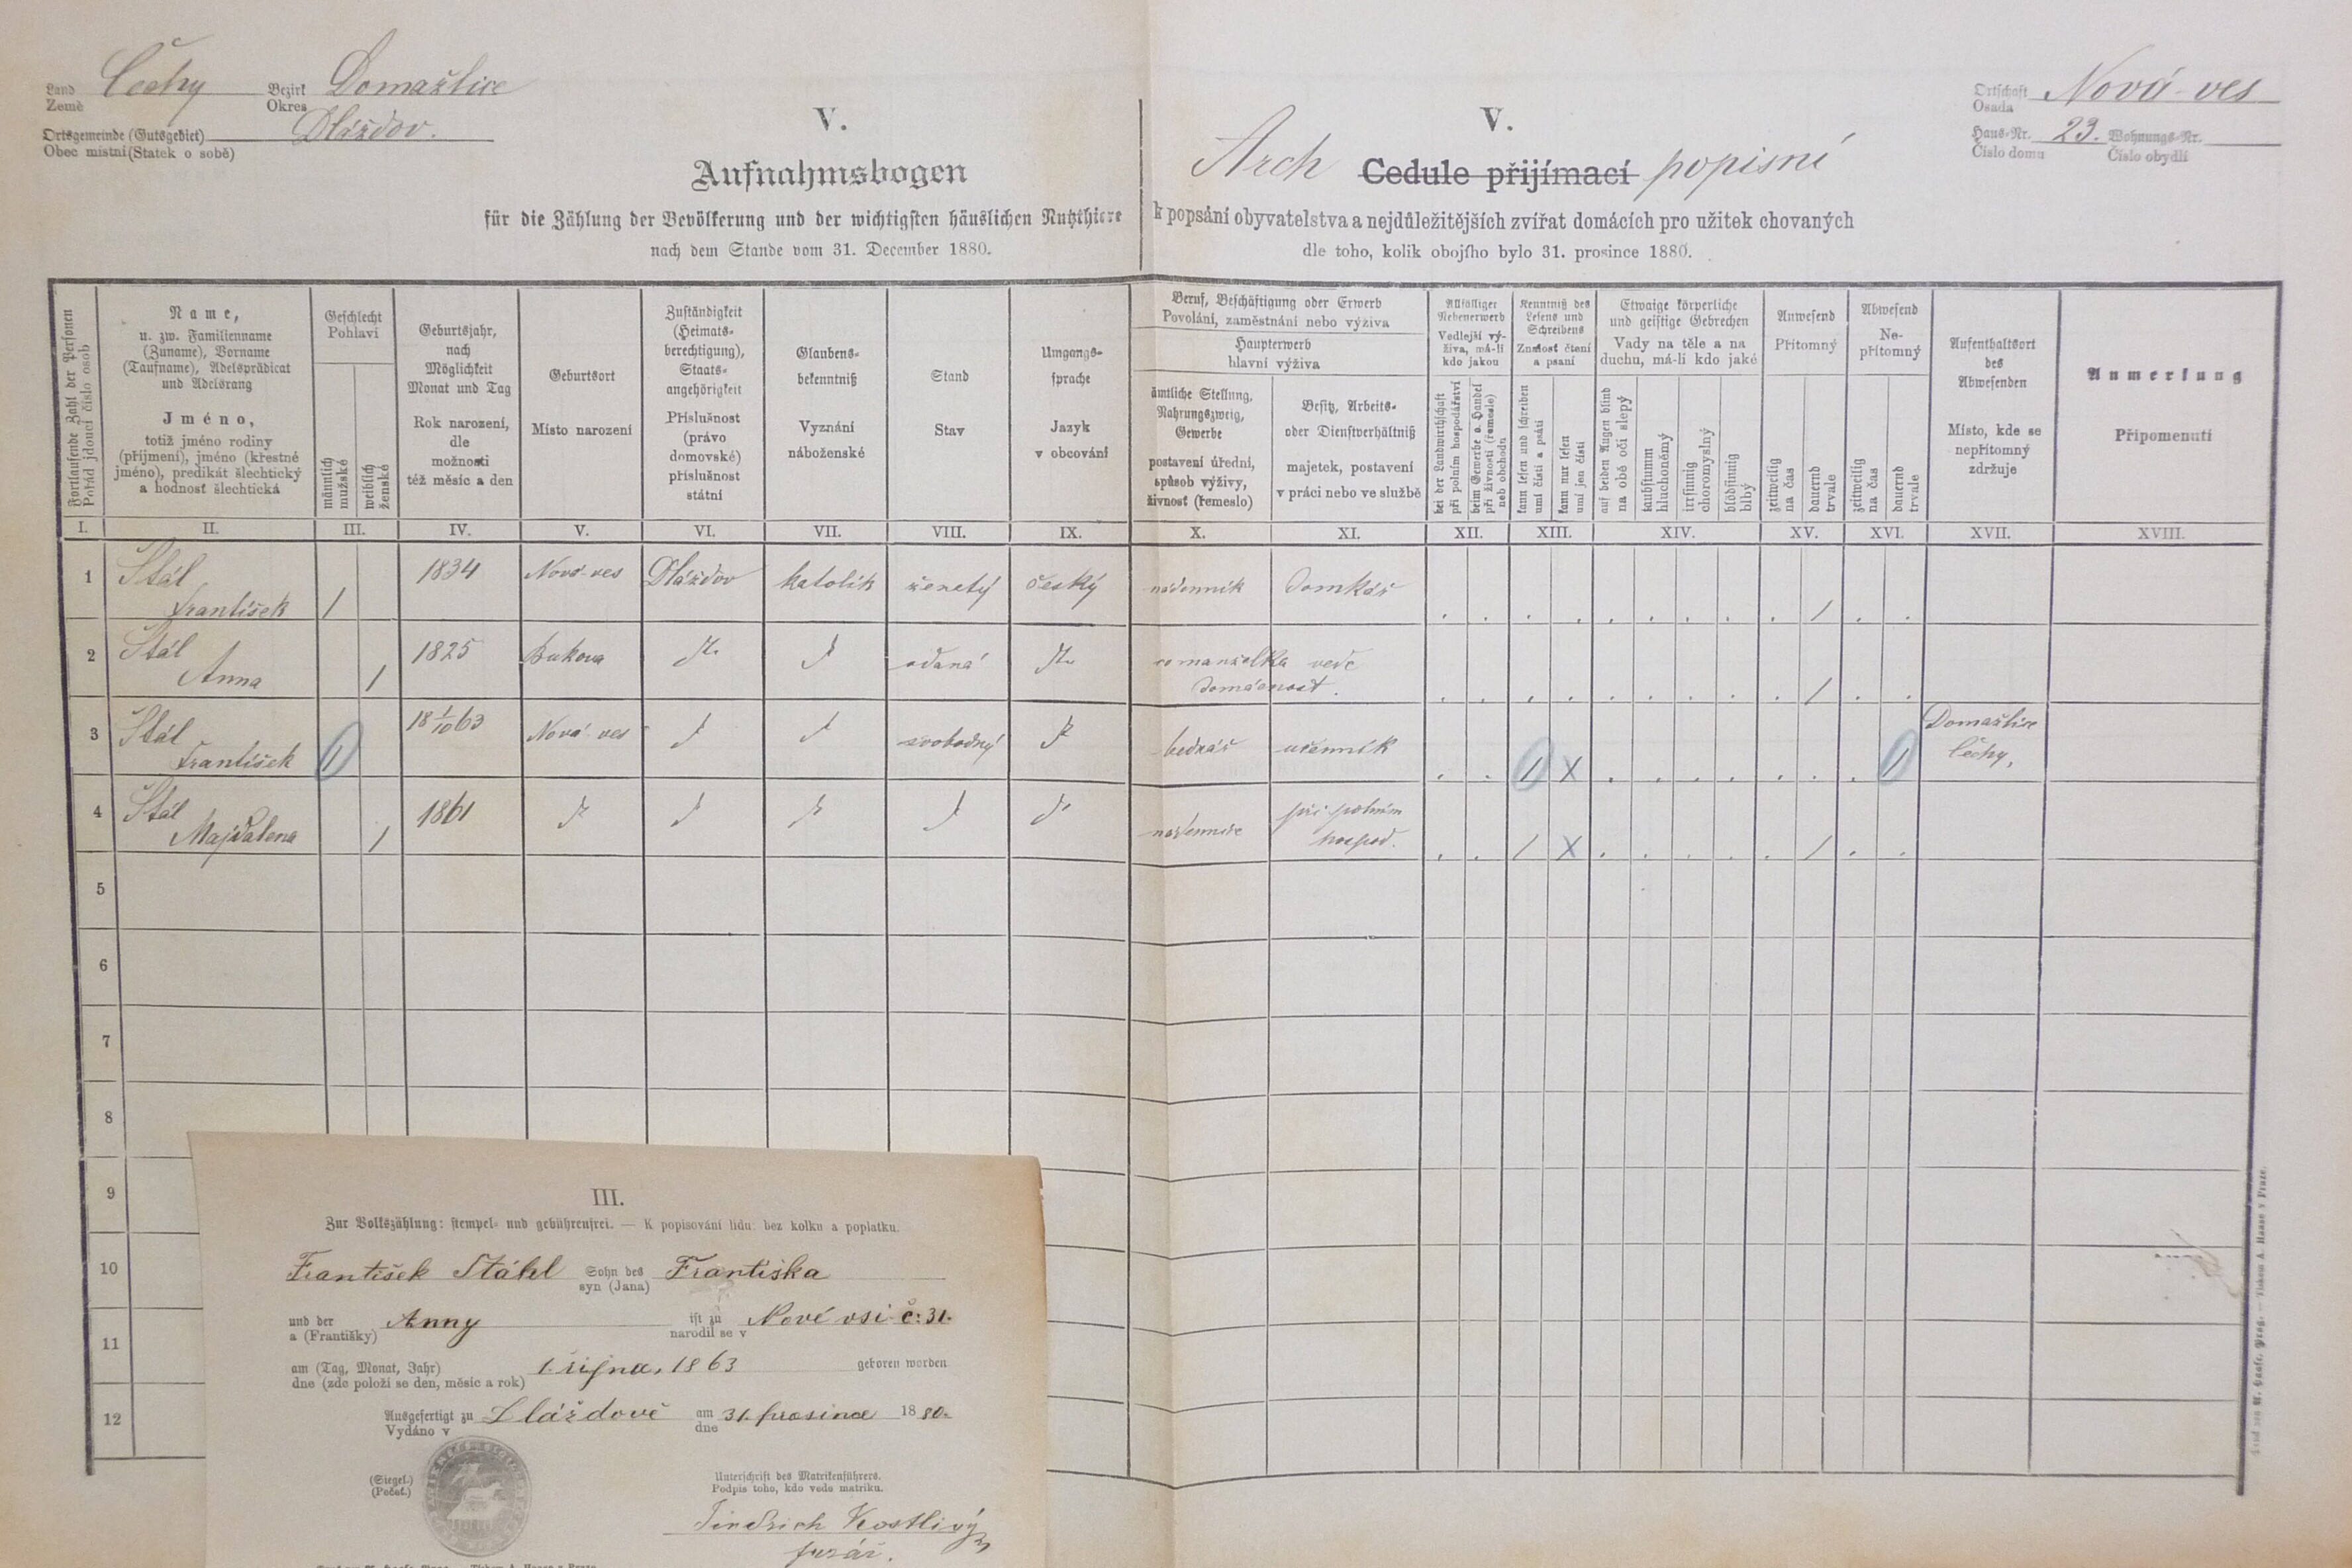 Land Čechy Bezirk Domažlice
Země Okres
Ortsgemeinde (Gutsgebiet) Dlážďov.
Obec místní (Statek o sobě)
V.
Aufnahmsbogen
für die Zählung der Bevölkerung und der wichtigsten häuslichen Nutzthiere
nach dem Stande vom 31. December 1880.
V.
Arch Cedule přijímací popisní
k popsání obyvatelstva a nejdůležitějších zvířat domácích pro užitek chovaných
dle toho, kolik obojího bylo 31. prosince 1880.
Ortschaft Nová-ves
Osada
Haus-Nr. 23. Wohnungs-Nr.
Číslo domu Číslo obydlí
Fortlaufende Zahl der Personen
Pořád jdoucí číslo osob
Name,
u. zw. Familienname
(Zuname), Vorname
(Taufname), Adelsprädicat
und Adelsrang
Jméno,
totiž jméno rodiny
(příjmení), jméno (křestné
jméno), predikát šlechtický
a hodnost šlechtická
Geschlecht
Pohlaví
männlich
mužské
weiblich
ženské
Geburtsjahr,
nach
Möglichkeit
Monat und Tag
Rok narození,
dle
možnosti
též měsíc a den
Geburtsort
Místo narození
Zuständigkeit
(Heimats-
berechtigung),
Staats-
angehörigkeit
Příslušnost
(právo
domovské)
příslušnost
státní
Glaubens-
bekenntniß
Vyznání
náboženské
Stand
Stav
Umgangs-
sprache
Jazyk
v obcování
Beruf, Beschäftigung oder Erwerb
Povolání, zaměstnání nebo výživa
Haupterwerb
hlavní výživa
ämtliche Stellung,
Nahrungszweig,
Gewerbe
postavení úřední,
spůsob výživy,
živnost (řemeslo)
Besitz, Arbeits-
oder Dienstverhältniß
majetek, postavení
v práci nebo ve službě
Allfälliger
Nebenerwerb
Vedlejší vý-
živa, má-li
kdo jakou
bei der Landwirthschaft
při polním hospodářství
beim Gewerbe o. Handel
při živnosti (řemesle)
neb obchodu
Kenntniß des
Lesens und
Schreibens
Známost čtení
a psaní
kann lesen und schreiben
umí čísti a psáti
kann nur lesen
umí jen čísti
Etwaige körperliche
und geistige Gebrechen
Vady na těle a na
duchu, má-li kdo jaké
auf beiden Augen blind
na obě oči slepý
taubstumm
hluchoněmý
irrsinnig
choromyslný
blödsinnig
blbý
Anwesend
Přítomný
zeitweilig
na čas
dauernd
trvale
Abwesend
Ne-
přítomný
zeitweilig
na čas
dauernd
trvale
Aufenthaltsort
des
Abwesenden
Místo, kde se
nepřítomný
zdržuje
Anmerkung
Připomenutí
I. II. III. IV. V. VI. VII. VIII. IX. X. XI. XII. XIII. XIV. XV. XVI. XVII. XVIII.
1 Štál František / 1834 Nová-ves Dlážďov katolík ženatý český nádenník domkář /
2 Štál Anna / 1825 Bukova vdaná manželka vede domácnost. /
3 Štál František 1 18 1/10 63 Nová-ves svobodný bednář učenník 1 X 1 Domažlice Čechy,
4 Štál Majdalena / 1861 při polním hospod. / X /
5
6
7
8
9
10
11
12
III.
Zur Volkszählung: stempel- und gebührenfrei. — K popisování lidu: bez kolku a poplatku.
František Stáhl Sohn des Františka
syn (Jana)
und der Anny ist zu Nové vsi č: 31.
a (Františky) narodil se v
am (Tag, Monat, Jahr) 1. října, 1863 geboren worden
dne (zde položí se den, měsíc a rok)
Ausgefertigt zu Dlážďově am 31. prosince 1880.
Vydáno v dne
(Siegel.)
(Pečeť.)
Unterschrift des Matrikenführers.
Podpis toho, kdo vede matriku.
Jindřich Kostlivý
farář.